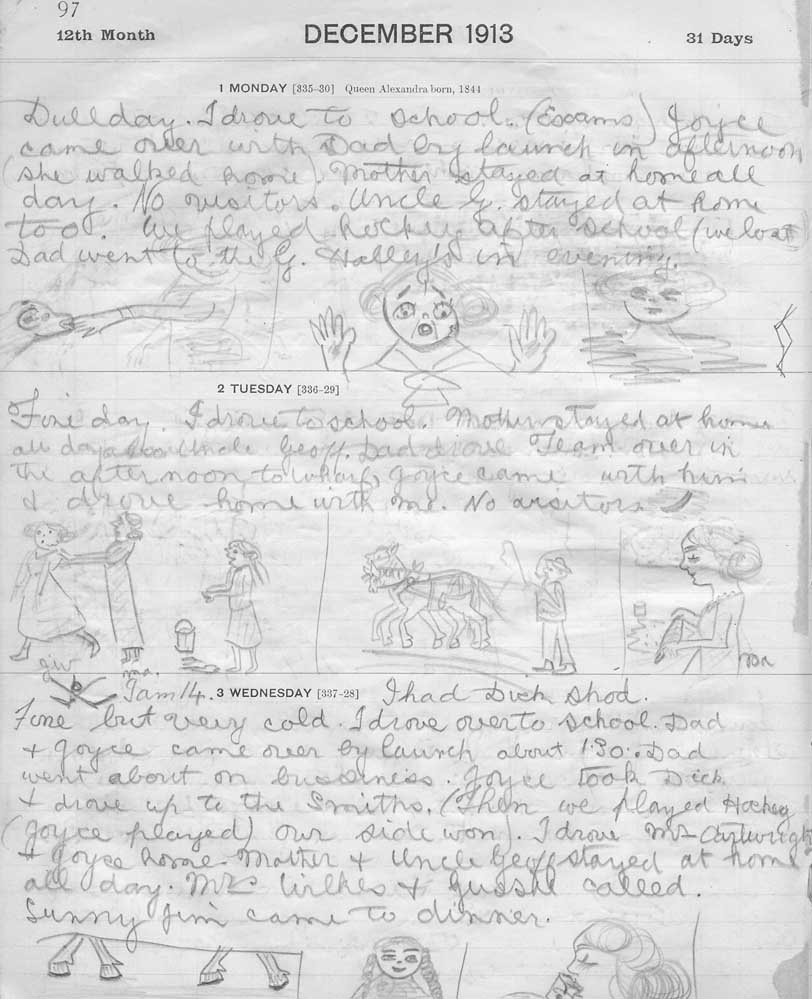 97
12th Month DECEMBER 1913 31 Days
1 MONDAY [335-30] Queen Alexandra born, 1844
Dull day. I drove to school. (Exams) Joyce
came over with Dad by launch in afternoon
(she walked home). Mother stayed at home all
day. No visitors. Uncle G. stayed at home
too. We played hockey after school (we lost
Dad went to the G. Halley's in evening.
2 TUESDAY [336-29]
Fine day. I drove to school. Mother stayed at home
all day also Uncle Geoff. Dad drove Team over in
the afternoon to wharf, Joyce came with him
& drove home with me. No visitors
giv
ma.
ma
I am 14. 3 WEDNESDAY [337-28] I had Dick shod.
Fine but very cold. I drove over to school. Dad
& Joyce came over by launch about 1.30. Dad
went about on bussiness. Joyce took Dick
& drove up to the Smiths. (Then we played Hockey
(Joyce played) our side won). I drove Mrs Cartwright
& Joyce home. Mother & Uncle Geoff stayed at home
all day. Mrs Wilkes & called.
Sunny Jim came to dinner.